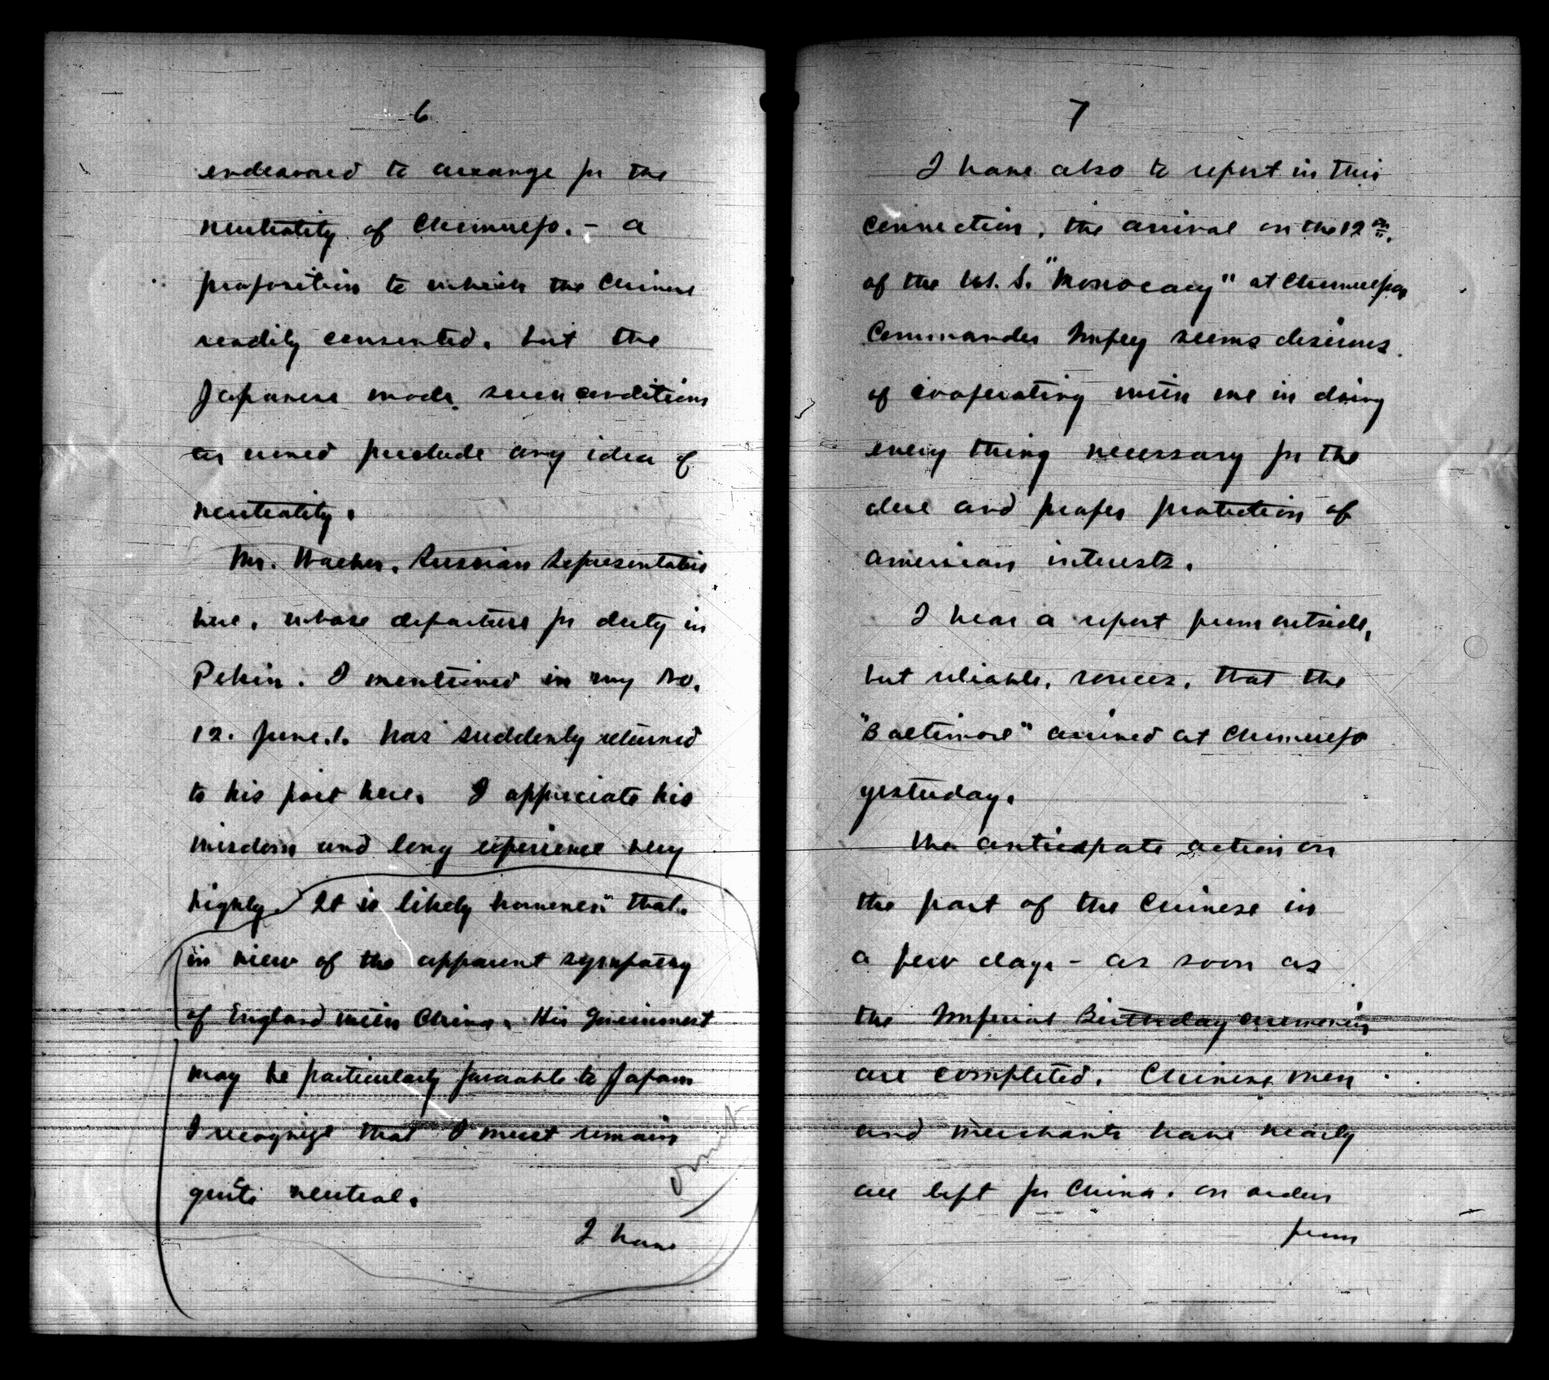 6
endeavored to arrange for the
neutrality of Chemulpo. - a
proposition to which the Chinese
readily consented, but the
Japanese made such conditions
as would preclude any idea of
neutrality.
Mr. Waeber, Russian Representative
here, whose departure for duty in
Pekin. I mentioned in my No.
12. June.1. has suddenly returned
to his post here. I appreciate his
wisdom and long experience very
highly. It is likely however that,
in view of the apparent sympathy
of England with China, His Government
may be particularly favorable to Japan
I recognize that I must remain
quite neutral.
omit
I have
7
I have also to report in this
connection, the arrival on the 12th,
of the U.S.S. "Monocacy" at Chemulpo
Commander Impey seems desirous
of cooperating with me in doing
every thing necessary for the
due and proper protection of
American interests.
I hear a report from outside,
but reliable, sources, that the
"Baltimore" arrived at Chemulpo
yesterday.
We anticipate action on
the part of the Chinese in
a few days - as soon as
the Imperial Birthday ceremonies
are completed. Chinese men
and merchants have nearly
all left for China. on orders
from